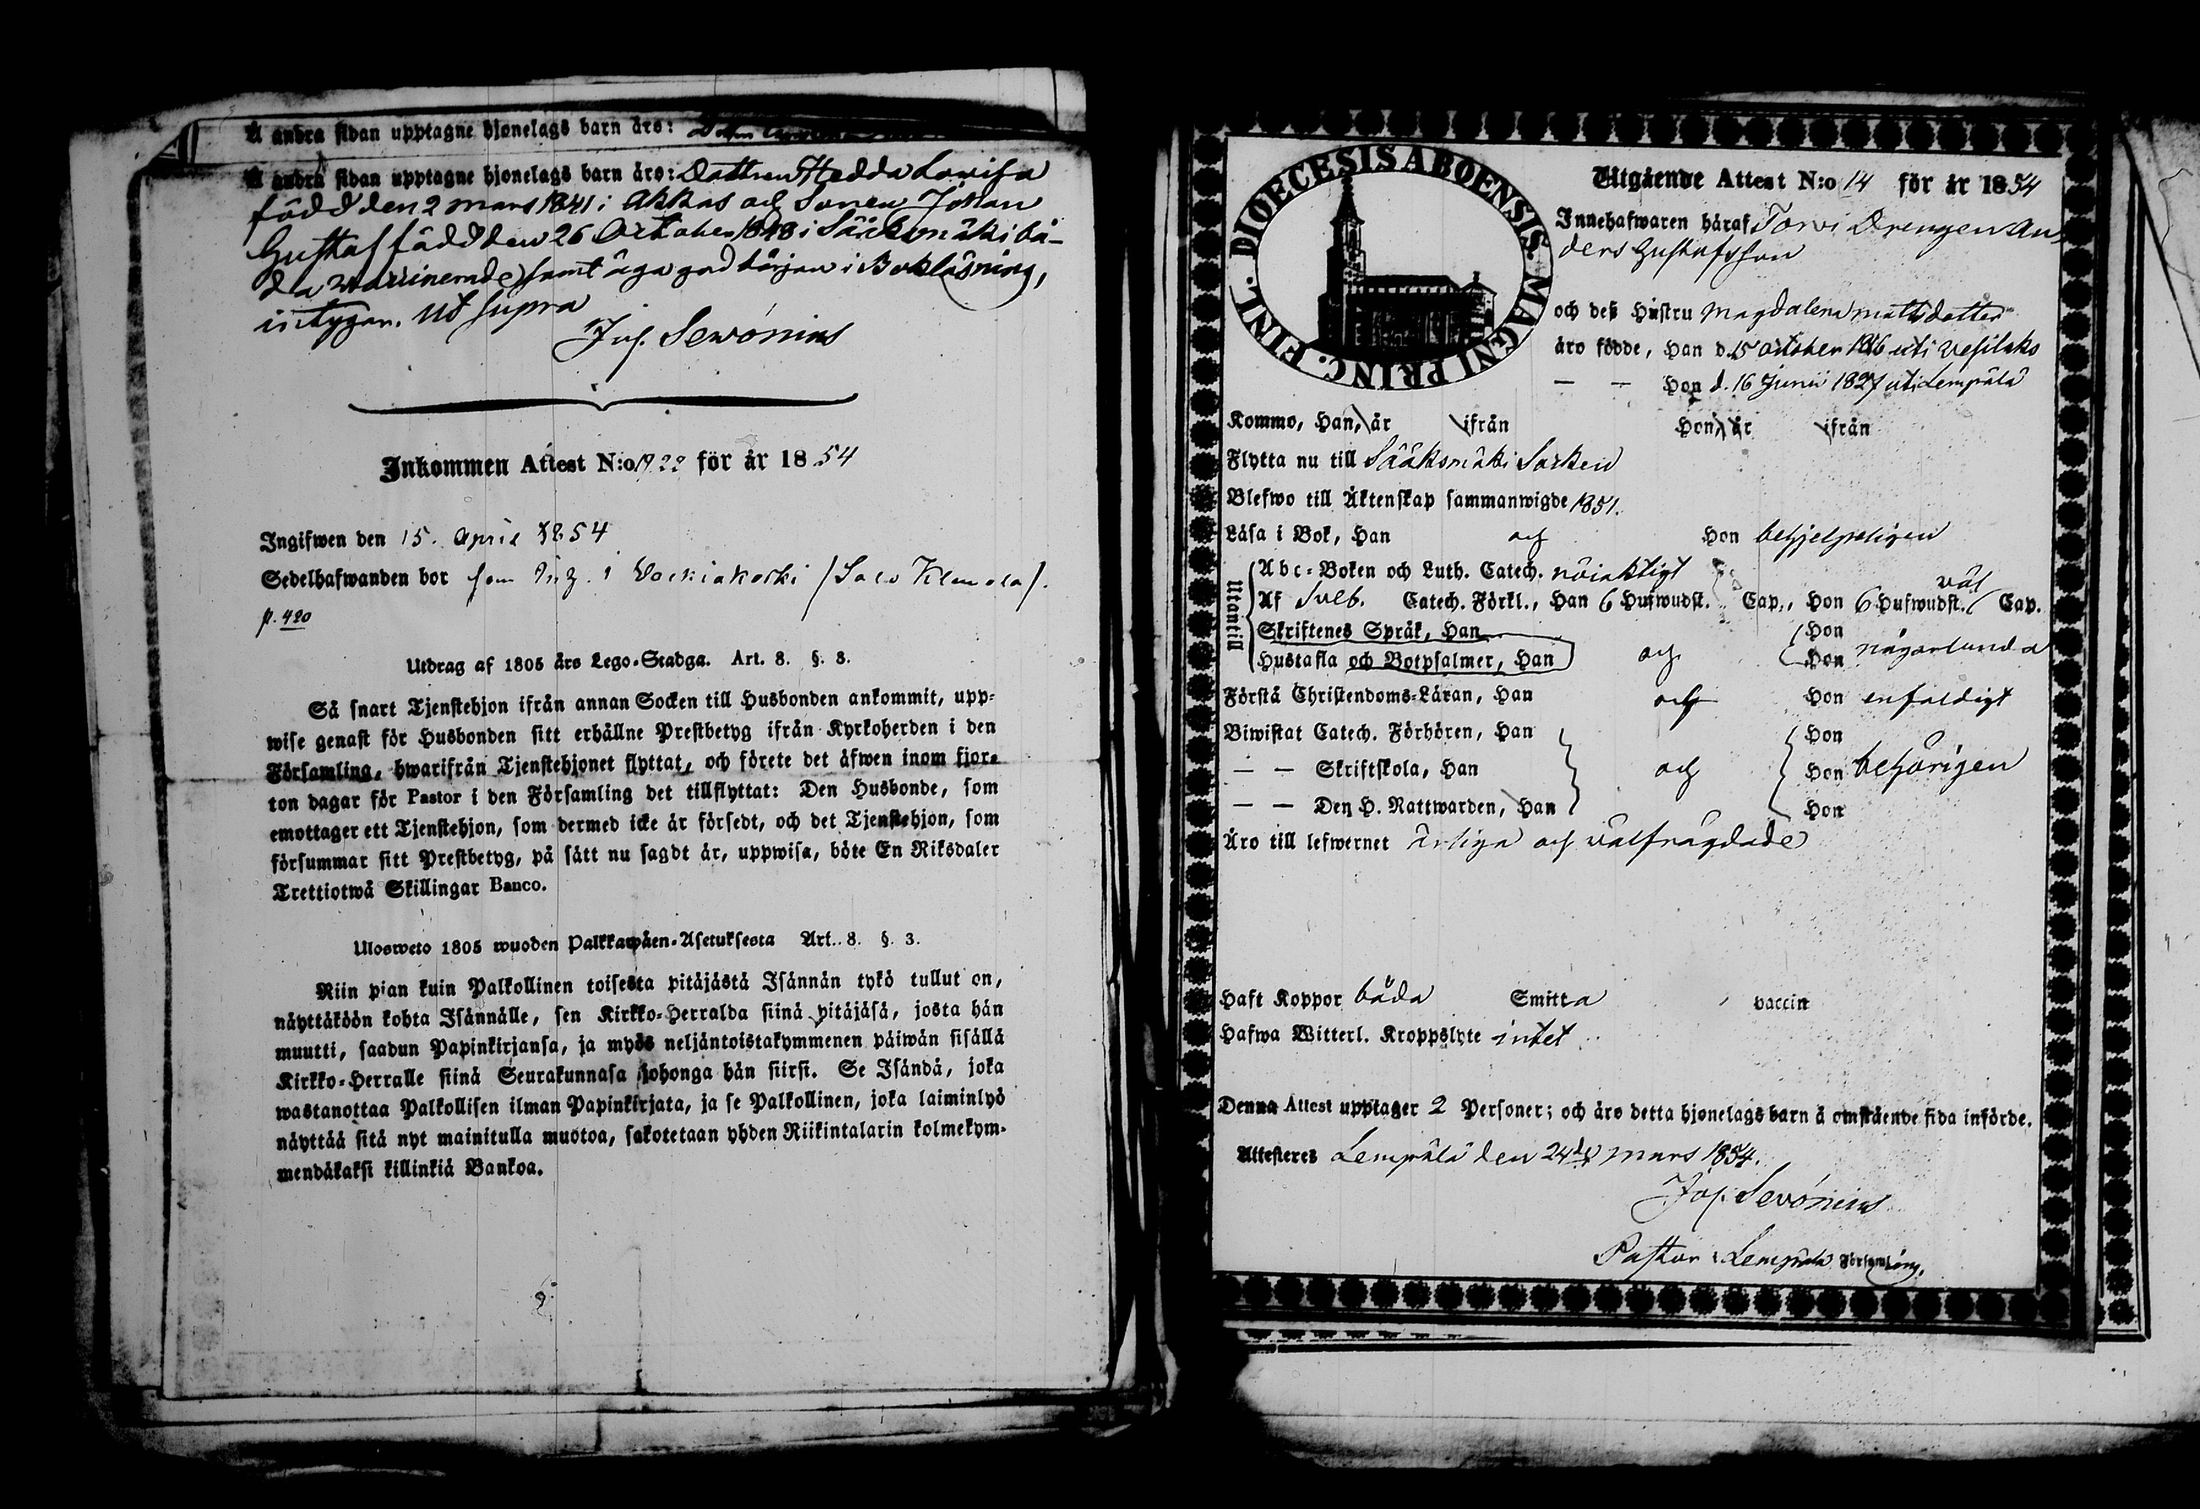 Å andra sidan upptagne hjonelags barn äro:
Å andra sidan upptagne hjonelags barn äro: Dottren Hedda Lovisa
född den 2 mars 1841 i Akkas och Sonen Johan
Gustaf född den 26 October 1848 i Sääksmäki bå-
da vaccinerade samt äga god början i Bokläsning,
intygar. Ut supra
Jos. Sevónius
Inkommen Attest N:o 22 för år 1854
Ingifwen den 15. April 1854
Sedelhafwanden bor som Inh. i
p. 420
Utdrag af 1805 års Lego-Stadga. Art. 8. §. 3.
Så snart Tjenstehjon ifrån annan Socken till Husbonden ankommit, upp-
wise genast för Husbonden sitt erhållne Prestbetyg ifrån Kyrkoherden i den
Församling, hwarifrån Tjenstehjonet flyttat, och förete det äfwen inom fjor-
ton dagar för Pastor i den Församling det tillflyttat: Den Husbonde, som
emottager ett Tjenstehjon, som dermed icke är försedt, och det Tjenstehjon, som
försummar sitt Prestbetyg, på sätt nu sagdt är, uppwisa, böte En Riksdaler
Trettiotwå Skillingar Banco.
Ulosweto 1805 wuoden Palkkawäen-Asetuksesta Art. 8. §. 3.
Niin pian kuin Palkollinen toisesta pitäjästä Isännän tykö tullut on,
näyttäköön kohta Isännälle, sen Kirkko-Herralda siinä pitäjäsä, josta hän
muutti, saadun Papinkirjansa, ja myös neljäntoistakymmenen päiwän sisällä
Kirkko-Herralle siinä Seurakunnasa johonga hän siirsi. Se Isändä, joka
wastanottaa Palkollisen ilman Papinkirjata, ja se Palkollinen, joka laiminlyö
näyttää sitä nyt mainitulla muotoa, sakotetaan yhden Riikintalarin kolmekym-
mendäkaksi killinkiä Bankoa.
DIOECESIS ABOENSIS. MAGNI PRINC. FINL.
Utgående Attest N:o 14 för år 1854
Innehafwaren häraf Torvi Drengen An-
ders Gustafsson
och deß Hustru Magdalena Mattsdotter
äro födde, Han d. 15 October 1816 uti Vesilaks
— — Hon d. 16 Junii 1827 uti Lempälä
Kommo, Han, år ifrån Hon, år ifrån
Flytta nu till Sääksmäki Socken
Blefwo till Äktenskap sammanwigde 1851.
Läsa i Bok, Han och Hon behjelpeligen
Utantill
Abc-Boken och Luth. Catech. nöiaktigt
Af Sveb. Catech. Förkl., Han 6 Hufwudst. Cap., Hon 6 Hufwudst. väl Cap.
Skriftenes Språk, Han Hon
Hustafla och Botpsalmer, Han och Hon någorlunda
Förstå Christendoms-Läran, Han och Hon enfaldigt
Biwistat Catech. Förhören, Han Hon
— — Skriftskola, Han och Hon behörigen
— — Den H. Nattwarden, Han Hon
Äro till lefwernet ärliga och välfrägdade
Haft Koppor båda Smitta vaccin
Hafwa Witterl. Kroppslyte intet
Denna Attest upptager 2 Personer; och äro detta hjonelags barn å omstående sida införde.
Attesteres Lempälä den 24de mars 1854.
Jos. Sevónius
Pastor i Lempälä Församling.